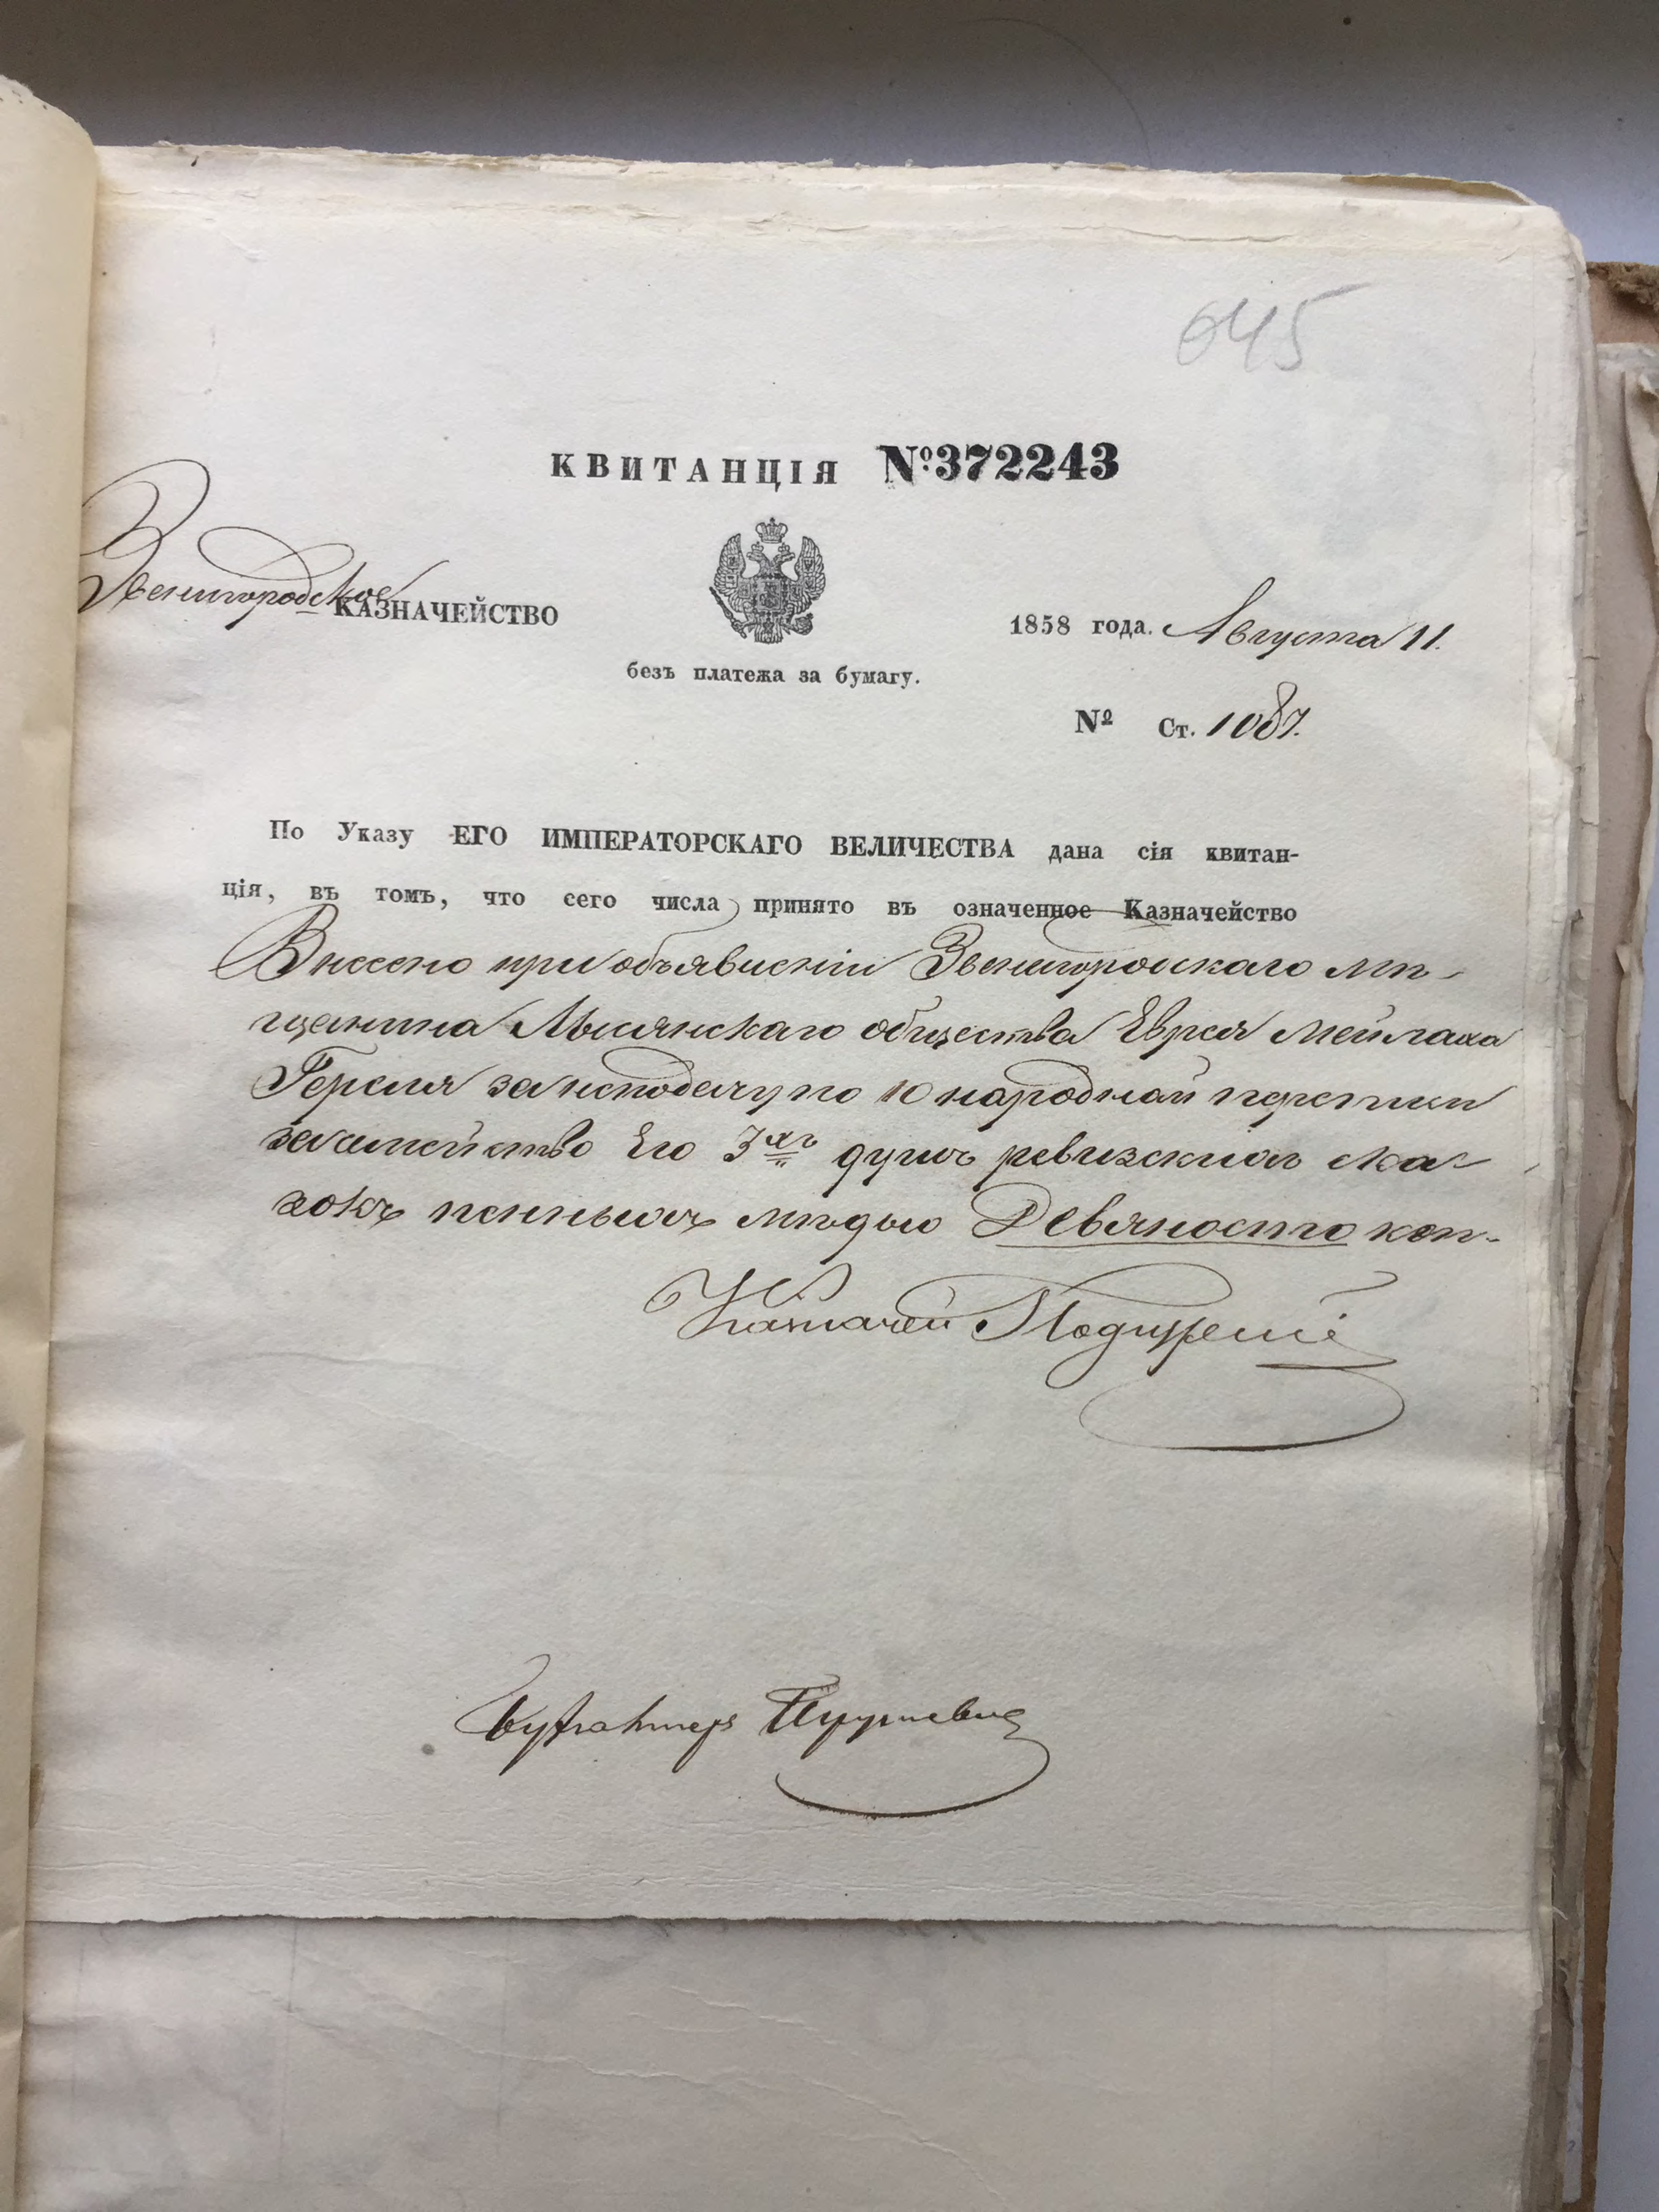 645
КВИТАНЦІЯ №372243
Звенигородское КАЗНАЧЕЙСТВО
1858 года. Августа 11.
безъ платежа за бумагу.
№ Ст. 1087.
По Указу ЕГО ИМПЕРАТОРСКАГО ВЕЛИЧЕСТВА дана сія квитан-
ція, въ томъ, что сего числа принято въ означенное Казначейство
Внесено при объявленіи Звенигородскаго мѣ-
щанина Лысянскаго общества Еврея Мейлаха
Герселя за неподачу по 10 народной переписи
за семейство Его 3хъ душъ ревизскихъ ска-
зокъ пенныхъ мѣдью Девяносто коп.
Казначей
Бухгалтеръ